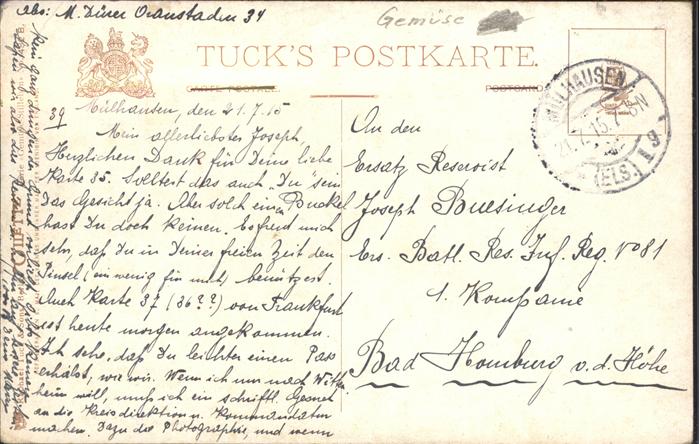 Abs: M. Dürer Oranstaden 34
Gemüse
TUCK'S POSTKARTE.
CARTE POSTALE
POSTCARD
MÜLHAUSEN
21.7.15. 7-8 N
(ELS.)
39
Mülhausen, den 21.7.15
Mein allerliebster Joseph,
Herzlichen Dank für Deine liebe
Karte 35. Solltest das auch „Du" sein
Das Gesicht ja. Aber solch einen Buckel
hast Du doch keinen. Es freut mich
sehr, daß Du in Deiner freien Zeit den
Pinsel, ein wenig für mich, benützest.
Auch Karte 37 (36??) von Frankfurt
ist heute morgen angekommen.
Ich sehe, daß Du leichter einen Pass
erhälst, wie wir. Wenn ich nach
heim will, muß ich ein schriftl. Gesuch
an die Kreisdirektion u. Kommandatur
machen. Dazu die Photographie, und wenn
An den
Ersatz Reservist
Joseph Buesinger
Ers. Batl. Res. Inf. Reg. No 81
1. Kompanie
Bad Homburg v. d. Höhe